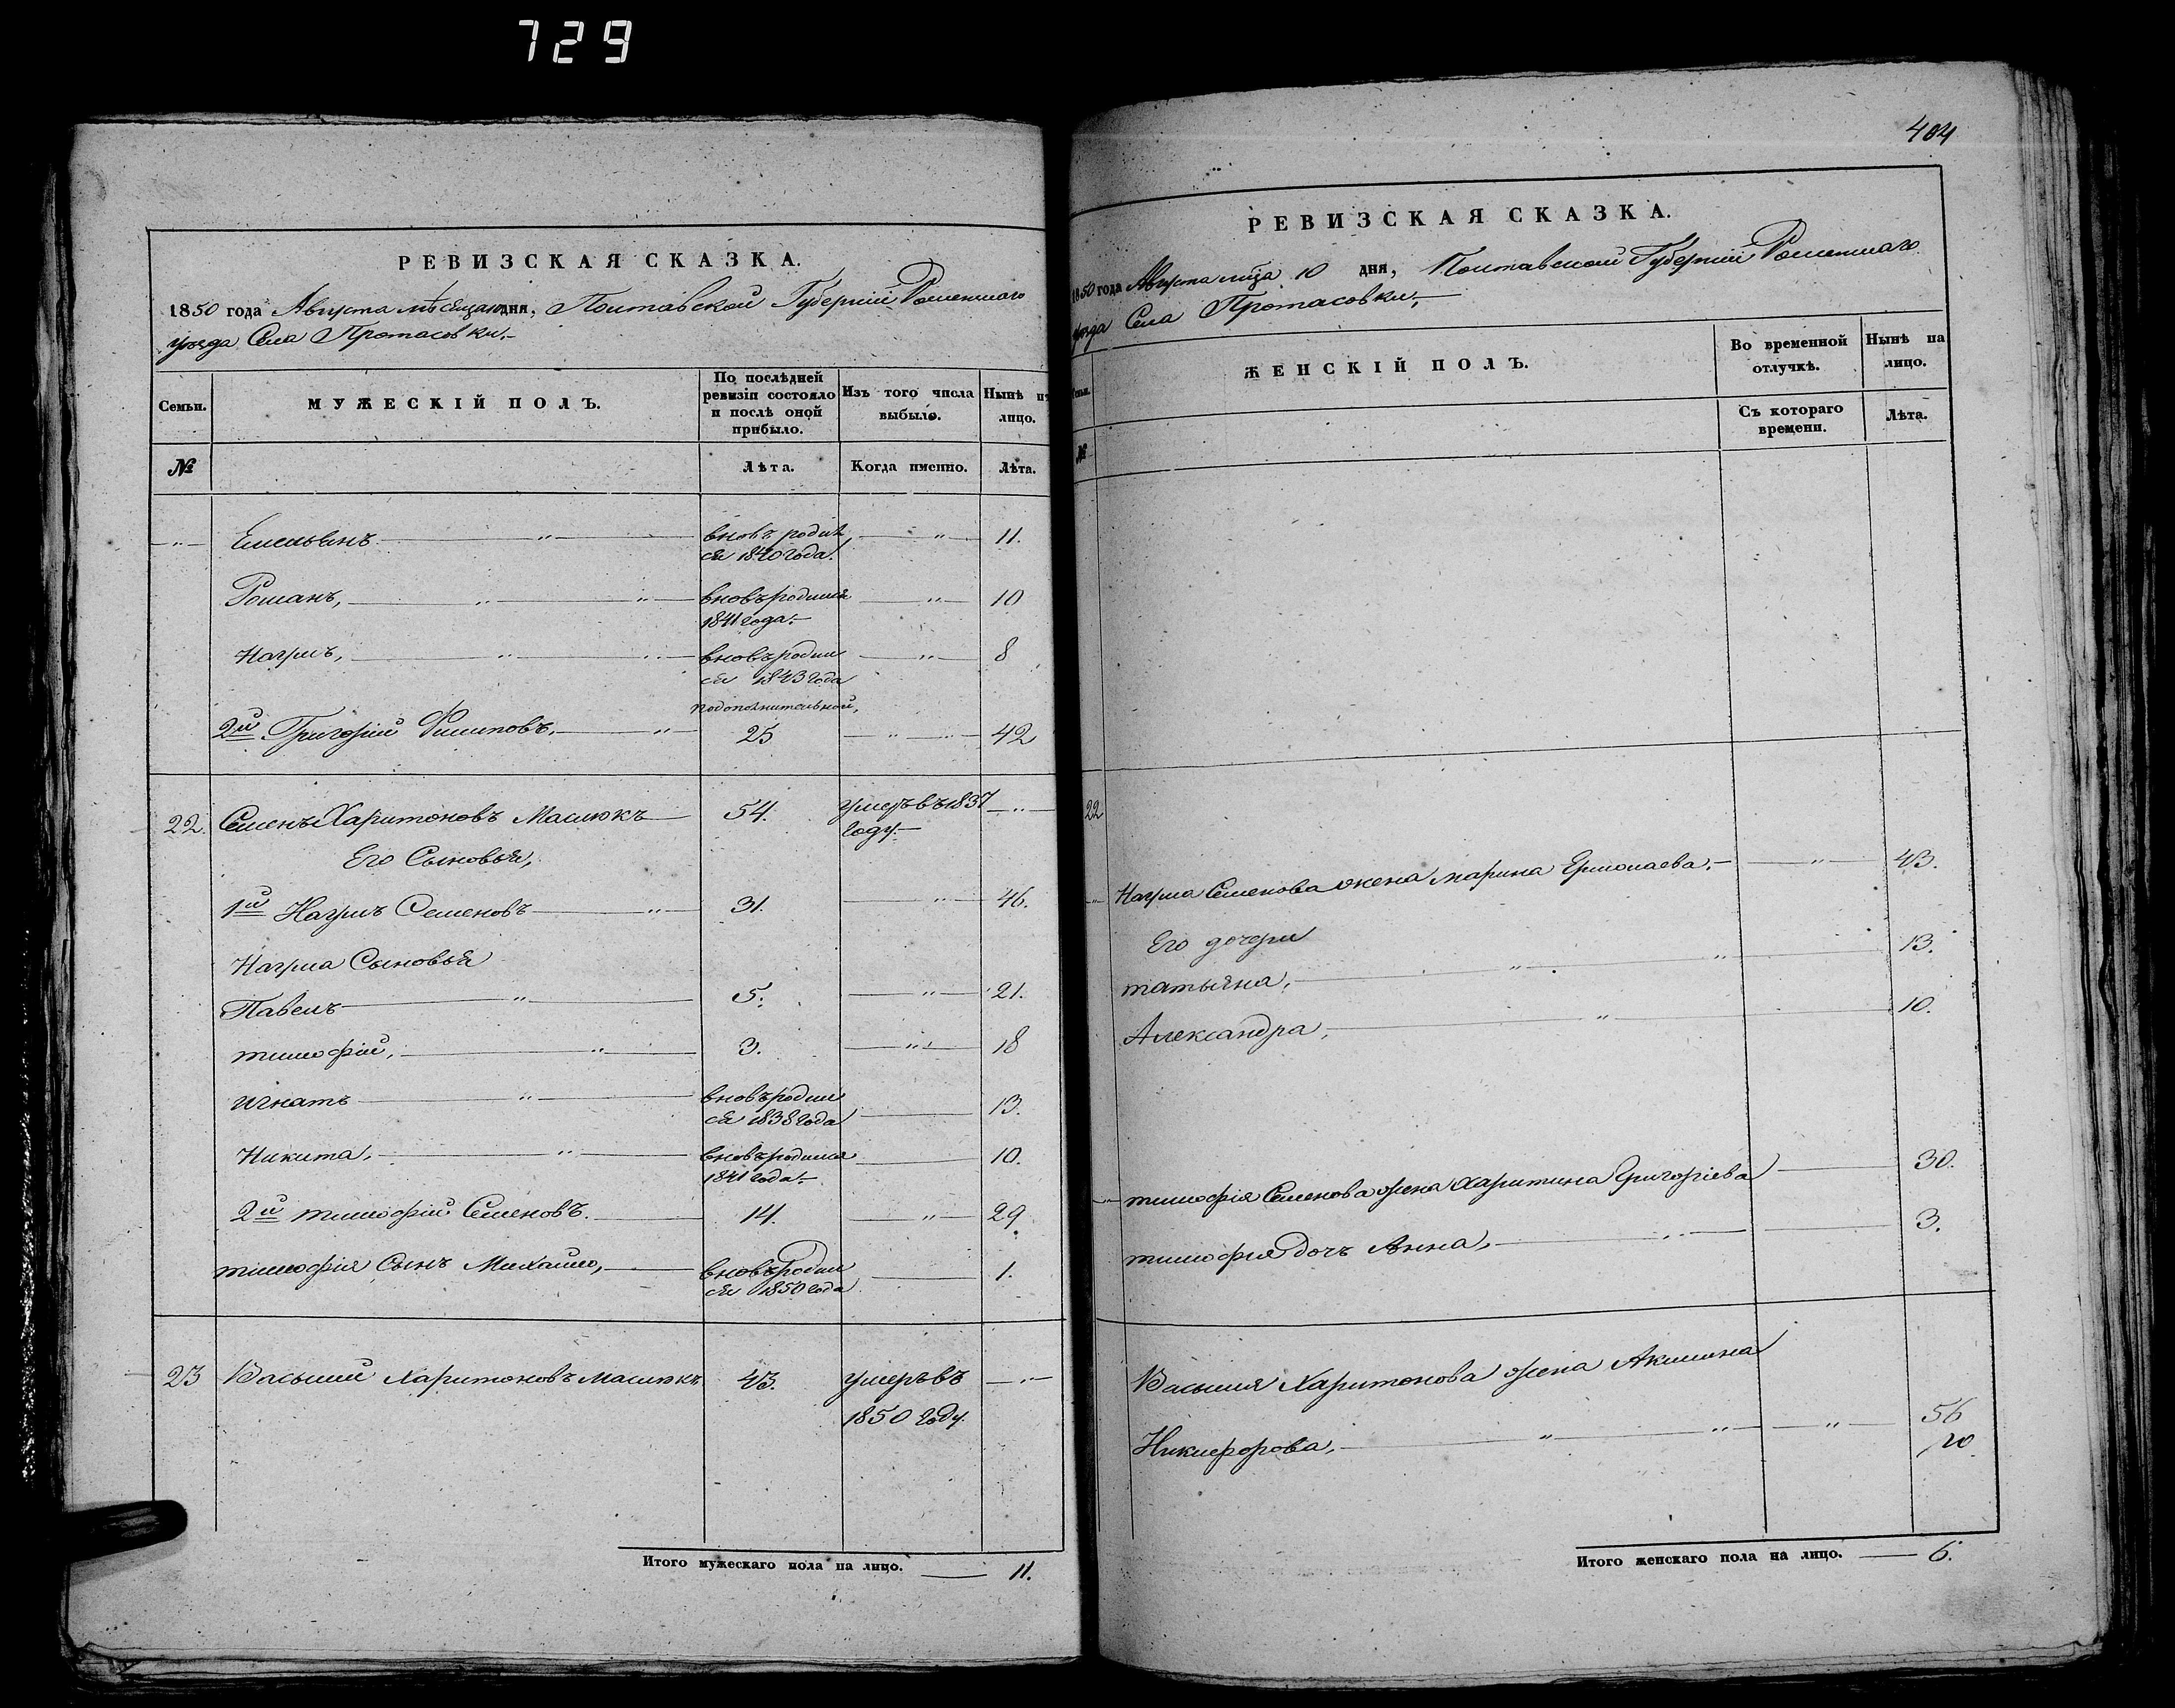 729
РЕВИЗСКАЯ СКАЗКА.
1850 года Августа мѣсяца 10 дня, Полтавской Губерніи Роменского
уѣзда Села Протасовки.
Семьи. МУЖЕСКІЙ ПОЛЪ. По послѣдней ревизіи состояло и послѣ оной прибыло. Изъ того числа выбыло. Нынѣ на лицо.
№ Лѣта. Когда именно. Лѣта.
Емельянъ вновь родил 11.
ся 1840 года.
Романъ, вновь родился 10
1841 года.
Наумъ, вновь родил 8
ся 1843 года
По дополнительной,
2й Григорій Филиповъ, 25 42
22. Семенъ Харитоновъ Маслюкъ 54. умеръ въ 1837
году.
Его Сыновья,
1й Наумъ Семеновъ 31. 46.
Наума Сыновья
Павелъ 5. 21.
тимофій, 3. 18
игнатъ вновь родил 13.
ся 1838 года
Никита, вновь родился 10.
1841 года.
2й тимофій Семеновъ. 14. 29.
тимофія Сынъ Михайло, вновь родил 1.
ся 1850 года
23 Василий Харитоновъ Маслюкъ 43. умеръ въ
1850 году.
Итого мужескаго пола на лицо. 11.
404
РЕВИЗСКАЯ СКАЗКА.
1850 года Августа мца 10 дня, Полтавской Губерніи Роменского
уѣзда Села Протасовки,
Семьи. ЖЕНСКІЙ ПОЛЪ. Во временной отлучкѣ. Нынѣ на лицо.
№ Съ котораго времени. Лѣта.
22
Наума Семенова жена марина Ермолаева, 43.
Его дочери
татьяна, 13.
Александра, 10.
тимофія Семенова жена Харитина Григоріева 30.
тимофия дочь Анна, 3.
Василия Харитонова жена Акилина
Никифорова, 56
Итого женскаго пола на лицо. 6.